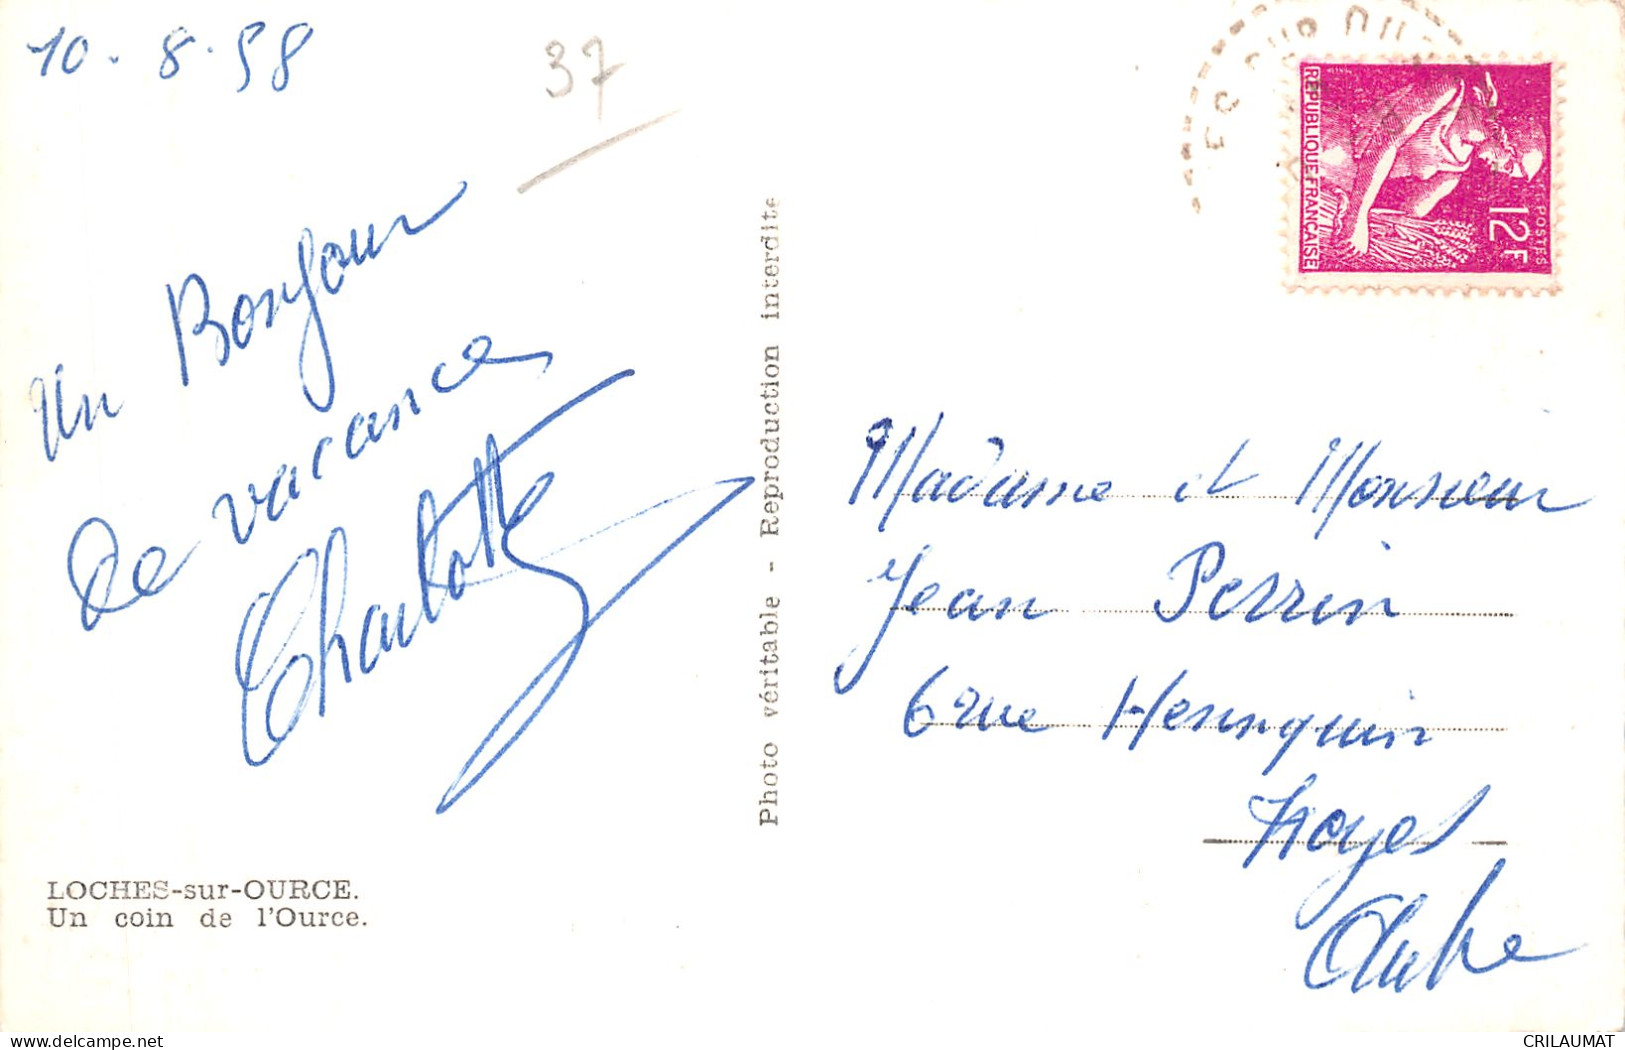 10 - 8 - 58
37
Un Bonjour
de vacances
Charlotte
LOCHES-sur-OURCE.
Un coin de l'Ource.
Photo véritable - Reproduction interdite
REPUBLIQUE FRANÇAISE
12F
POSTES
Madame et Monsieur
Jean Perrin
6 rue Hennequin
Troyes
Aube
delcampe.net
CRILAUMAT